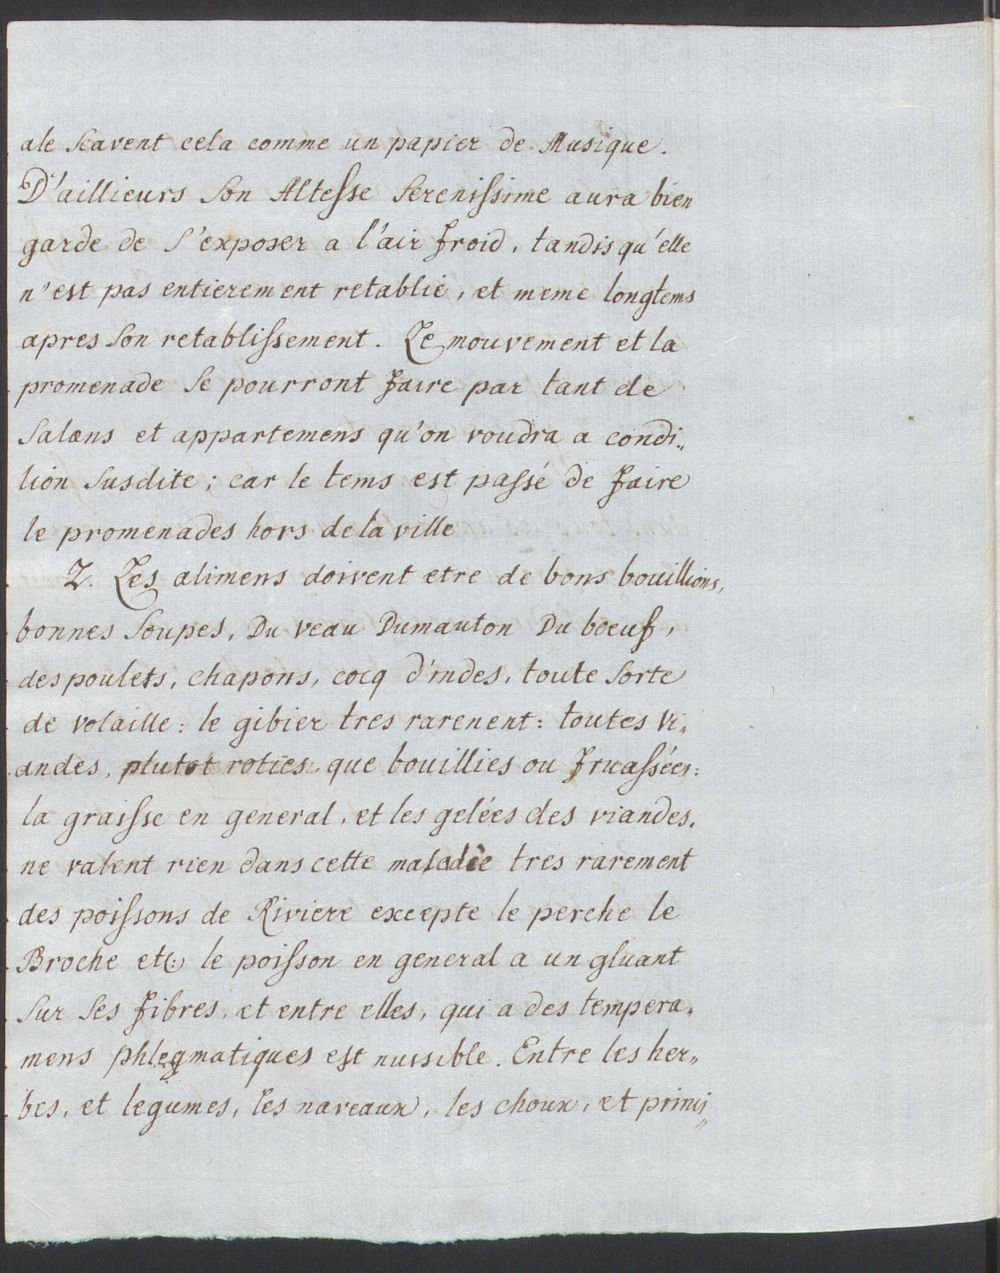 ale scavent cela comme un papier de Musique.
D'aillieurs Son Altesse Serenissime aura bien
garde de s'exposer a l'air froid, tandis qu'elle
n'est pas entierement retablie, et meme longtems
apres Son retablissement. Le mouvement et la
promenade se pourront faire par tant de
Salons et appartemens qu'on voudra a condi„
tion Susdite; car le tems est passé de faire
le promenades hors de la ville
2. Les alimens doivent etre de bons bouillions,
bonnes Soupes, Du veau Du mauton Du boeuf,
des poulets, chapons, cocq d'indes, toute Sorte
de volaille: le gibier tres rarenent: toutes vi„
andes, plutot roties, que bouillies ou fricassées:
la graisse en general, et les gelées des viandes,
ne valent rien dans cette maladie tres rarement
des poissons de Riviere excepte le perche le
Broche etc: le poisson en general a un gluant
Sur Ses fibres, et entre elles, qui a des tempera„
mens phlegmatiques est nuisible. Entre les her„
bes, et legumes, les naveaux, les choux, et princi„